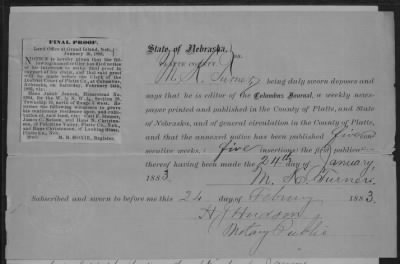 FINAL PROOF.
Land Office at Grand Island, Neb.,
January 20, 1883.
NOTICE is hereby given that the fol-
lowing named settler has filed notice
of his intention to make final proof in
support of his claim, and that said proof
will be made before the Clerk of the
District Court of Platte Co., at Columbus,
Nebraska, on Saturday, February 24th,
1883, viz:
Hans Jacob Jensen, Homestead No.
for the W. ½ N. W. ¼, Section 28,
Township 19, north of Range 4 west. He
names the following witnesses to prove
his continuous residence upon, and culti-
vation of, said land, viz: Carl F. Hansen,
James C. Nelson and Hans N. Christen-
sen, of Palestine Valley, Platte Co., Neb.,
and Hans Christensen, of Looking Glass,
Platte Co., Neb.
M. B. HOXIE, Register.
State of Nebraska,
PLATTE COUNTY. ss.
M. K. Turner being duly sworn deposes and
says that he is editor of the Columbus Journal, a weekly news-
paper printed and published in the County of Platte, and State
of Nebraska, and of general circulation in the County of Platte,
and that the annexed notice has been published five con-
secutive weeks; five insertions; the first publica-
thereof having been made the 24th day of January
1883. M. K. Turner.
Subscribed and sworn to before me this 24 day of February 1883.
H J Hudson
Notary Public